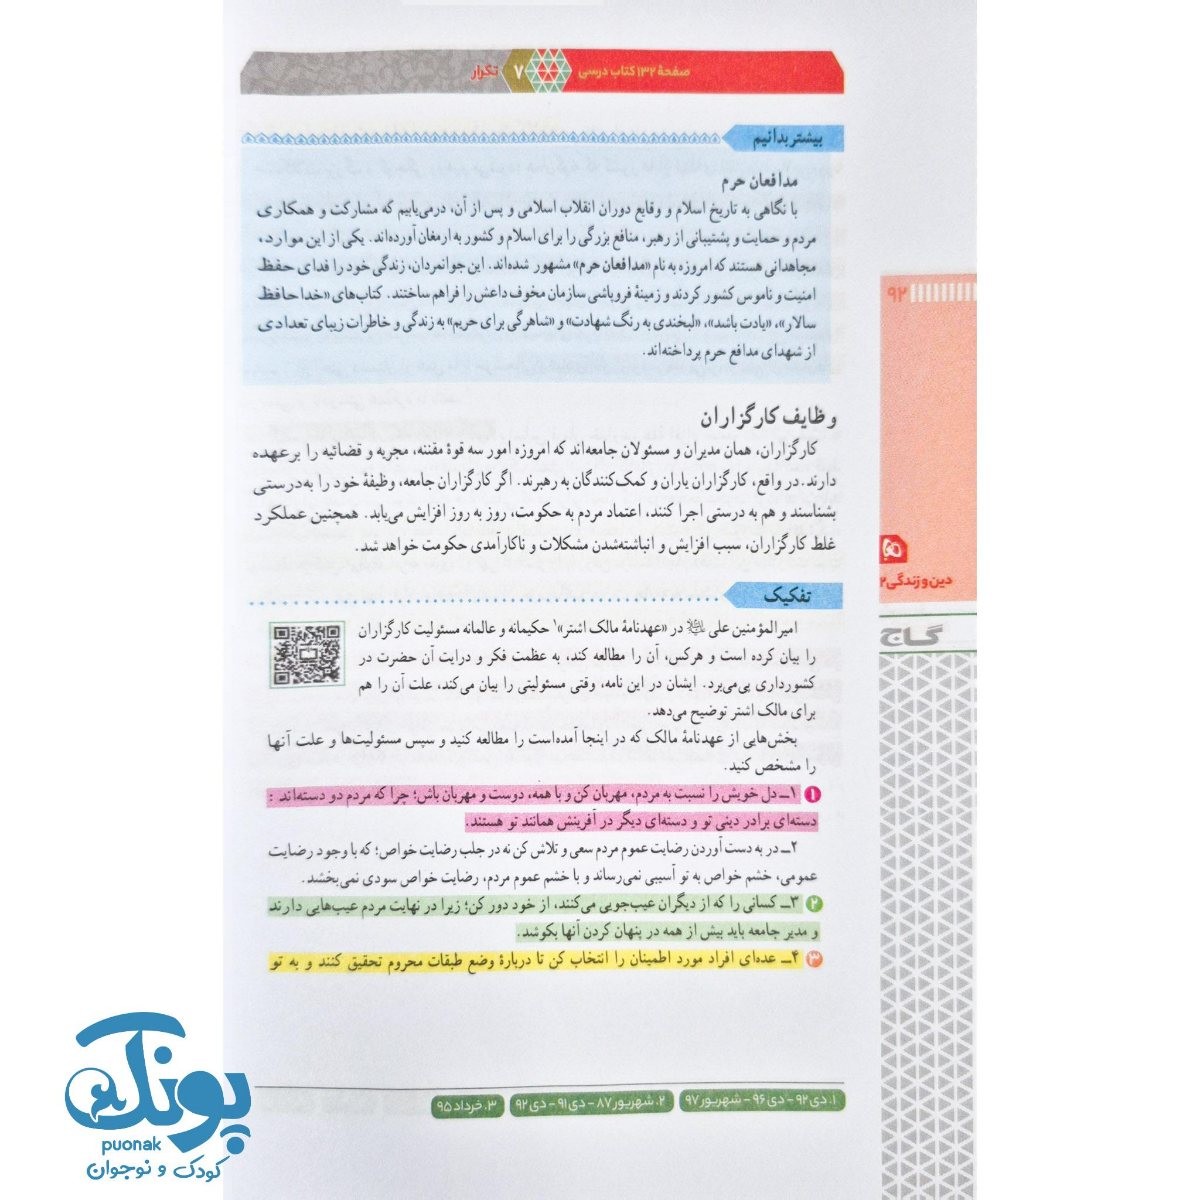 صفحهٔ ۱۳۲ کتاب درسی
۷ تکرار
بیشتر بدانیم
مدافعان حرم
با نگاهی به تاریخ اسلام و وقایع دوران انقلاب اسلامی و پس از آن، درمی‌یابیم که مشارکت و همکاری
مردم و حمایت و پشتیبانی از رهبر، منافع بزرگی را برای اسلام و کشور به ارمغان آورده‌اند. یکی از این موارد،
مجاهدانی هستند که امروزه به نام «مدافعان حرم» مشهور شده‌اند. این جوانمردان، زندگی خود را فدای حفظ
امنیت و ناموس کشور کردند و زمینهٔ فروپاشی سازمان مخوف داعش را فراهم ساختند. کتاب‌های «خداحافظ
سالار»، «یادت باشد»، «لبخندی به رنگ شهادت» و «شاهرگی برای حریم» به زندگی و خاطرات زیبای تعدادی
از شهدای مدافع حرم پرداخته‌اند.
وظایف کارگزاران
کارگزاران، همان مدیران و مسئولان جامعه‌اند که امروزه امور سه قوهٔ مقننه، مجریه و قضائیه را برعهده
دارند. در واقع، کارگزاران یاران و کمک‌کنندگان به رهبرند. اگر کارگزاران جامعه، وظیفهٔ خود را به‌درستی
بشناسند و هم به درستی اجرا کنند، اعتماد مردم به حکومت، روز به روز افزایش می‌یابد. همچنین عملکرد
غلط کارگزاران، سبب افزایش و انباشته‌شدن مشکلات و ناکارآمدی حکومت خواهد شد.
تفکیک
امیرالمؤمنین علی در «عهدنامهٔ مالک اشتر»۱ حکیمانه و عالمانه مسئولیت کارگزاران
را بیان کرده است و هرکس، آن را مطالعه کند، به عظمت فکر و درایت آن حضرت در
کشورداری پی‌می‌برد. ایشان در این نامه، وقتی مسئولیتی را بیان می‌کند، علت آن را هم
برای مالک اشتر توضیح می‌دهد.
بخش‌هایی از عهدنامهٔ مالک که در اینجا آمده‌است را مطالعه کنید و سپس مسئولیت‌ها و علت آنها
را مشخص کنید.
۱ ۱ــ دل خویش را نسبت به مردم، مهربان کن و با همه، دوست و مهربان باش؛ چرا که مردم دو دسته‌اند :
دسته‌ای برادر دینی تو و دسته‌ای دیگر در آفرینش همانند تو هستند.
۲ــ در به دست آوردن رضایت عموم مردم سعی و تلاش کن نه در جلب رضایت خواص؛ که با وجود رضایت
عمومی، خشم خواص به تو آسیبی نمی‌رساند و با خشم عموم مردم، رضایت خواص سودی نمی‌بخشد.
۲ ۳ــ کسانی را که از دیگران عیب‌جویی می‌کنند، از خود دور کن؛ زیرا در نهایت مردم عیب‌هایی دارند
و مدیر جامعه باید بیش از همه در پنهان کردن آنها بکوشد.
۳ ۴ــ عده‌ای افراد مورد اطمینان را انتخاب کن تا دربارهٔ وضع طبقات محروم تحقیق کنند و به تو
۱. دی۹۲ - دی۹۶ - شهریور۹۷ ۲. شهریور۸۷ - دی۹۱ - دی۹۲ ۳. خرداد۹۵
۹۲
دین و زندگی۲
گاج
پونک
puonak
کودک و نوجوان